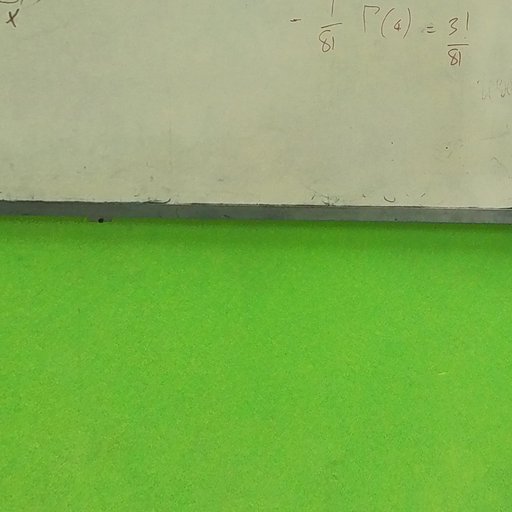 x
- 1/81 Γ(4) = 3!/81